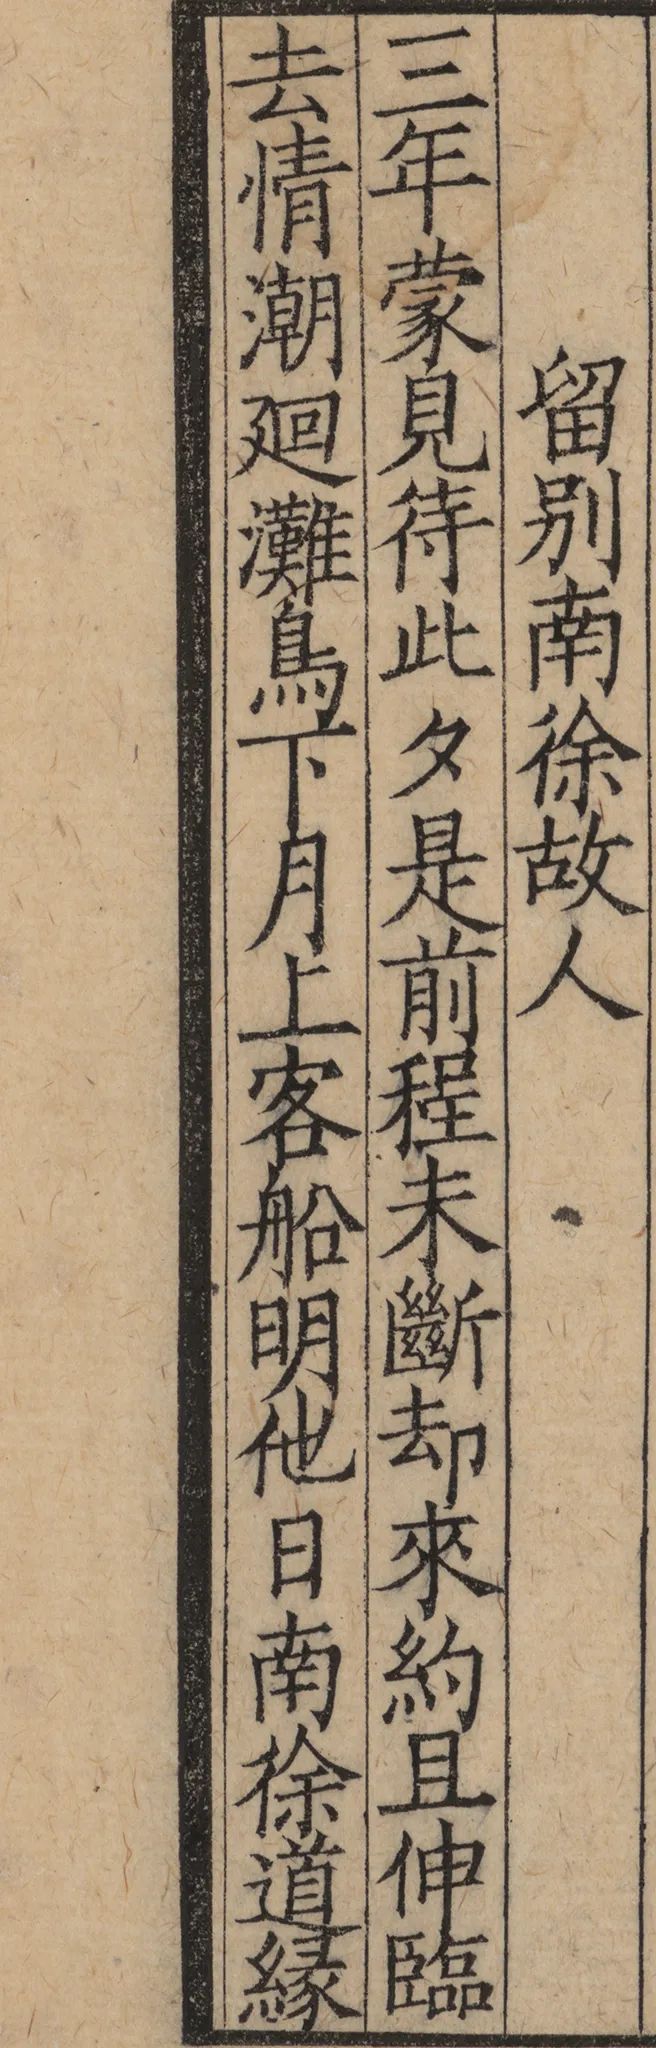 留别南徐故人
三年蒙見待此夕是前程未斷却來約且伸臨
去情潮廻灘鳥下月上客船明他日南徐道緣